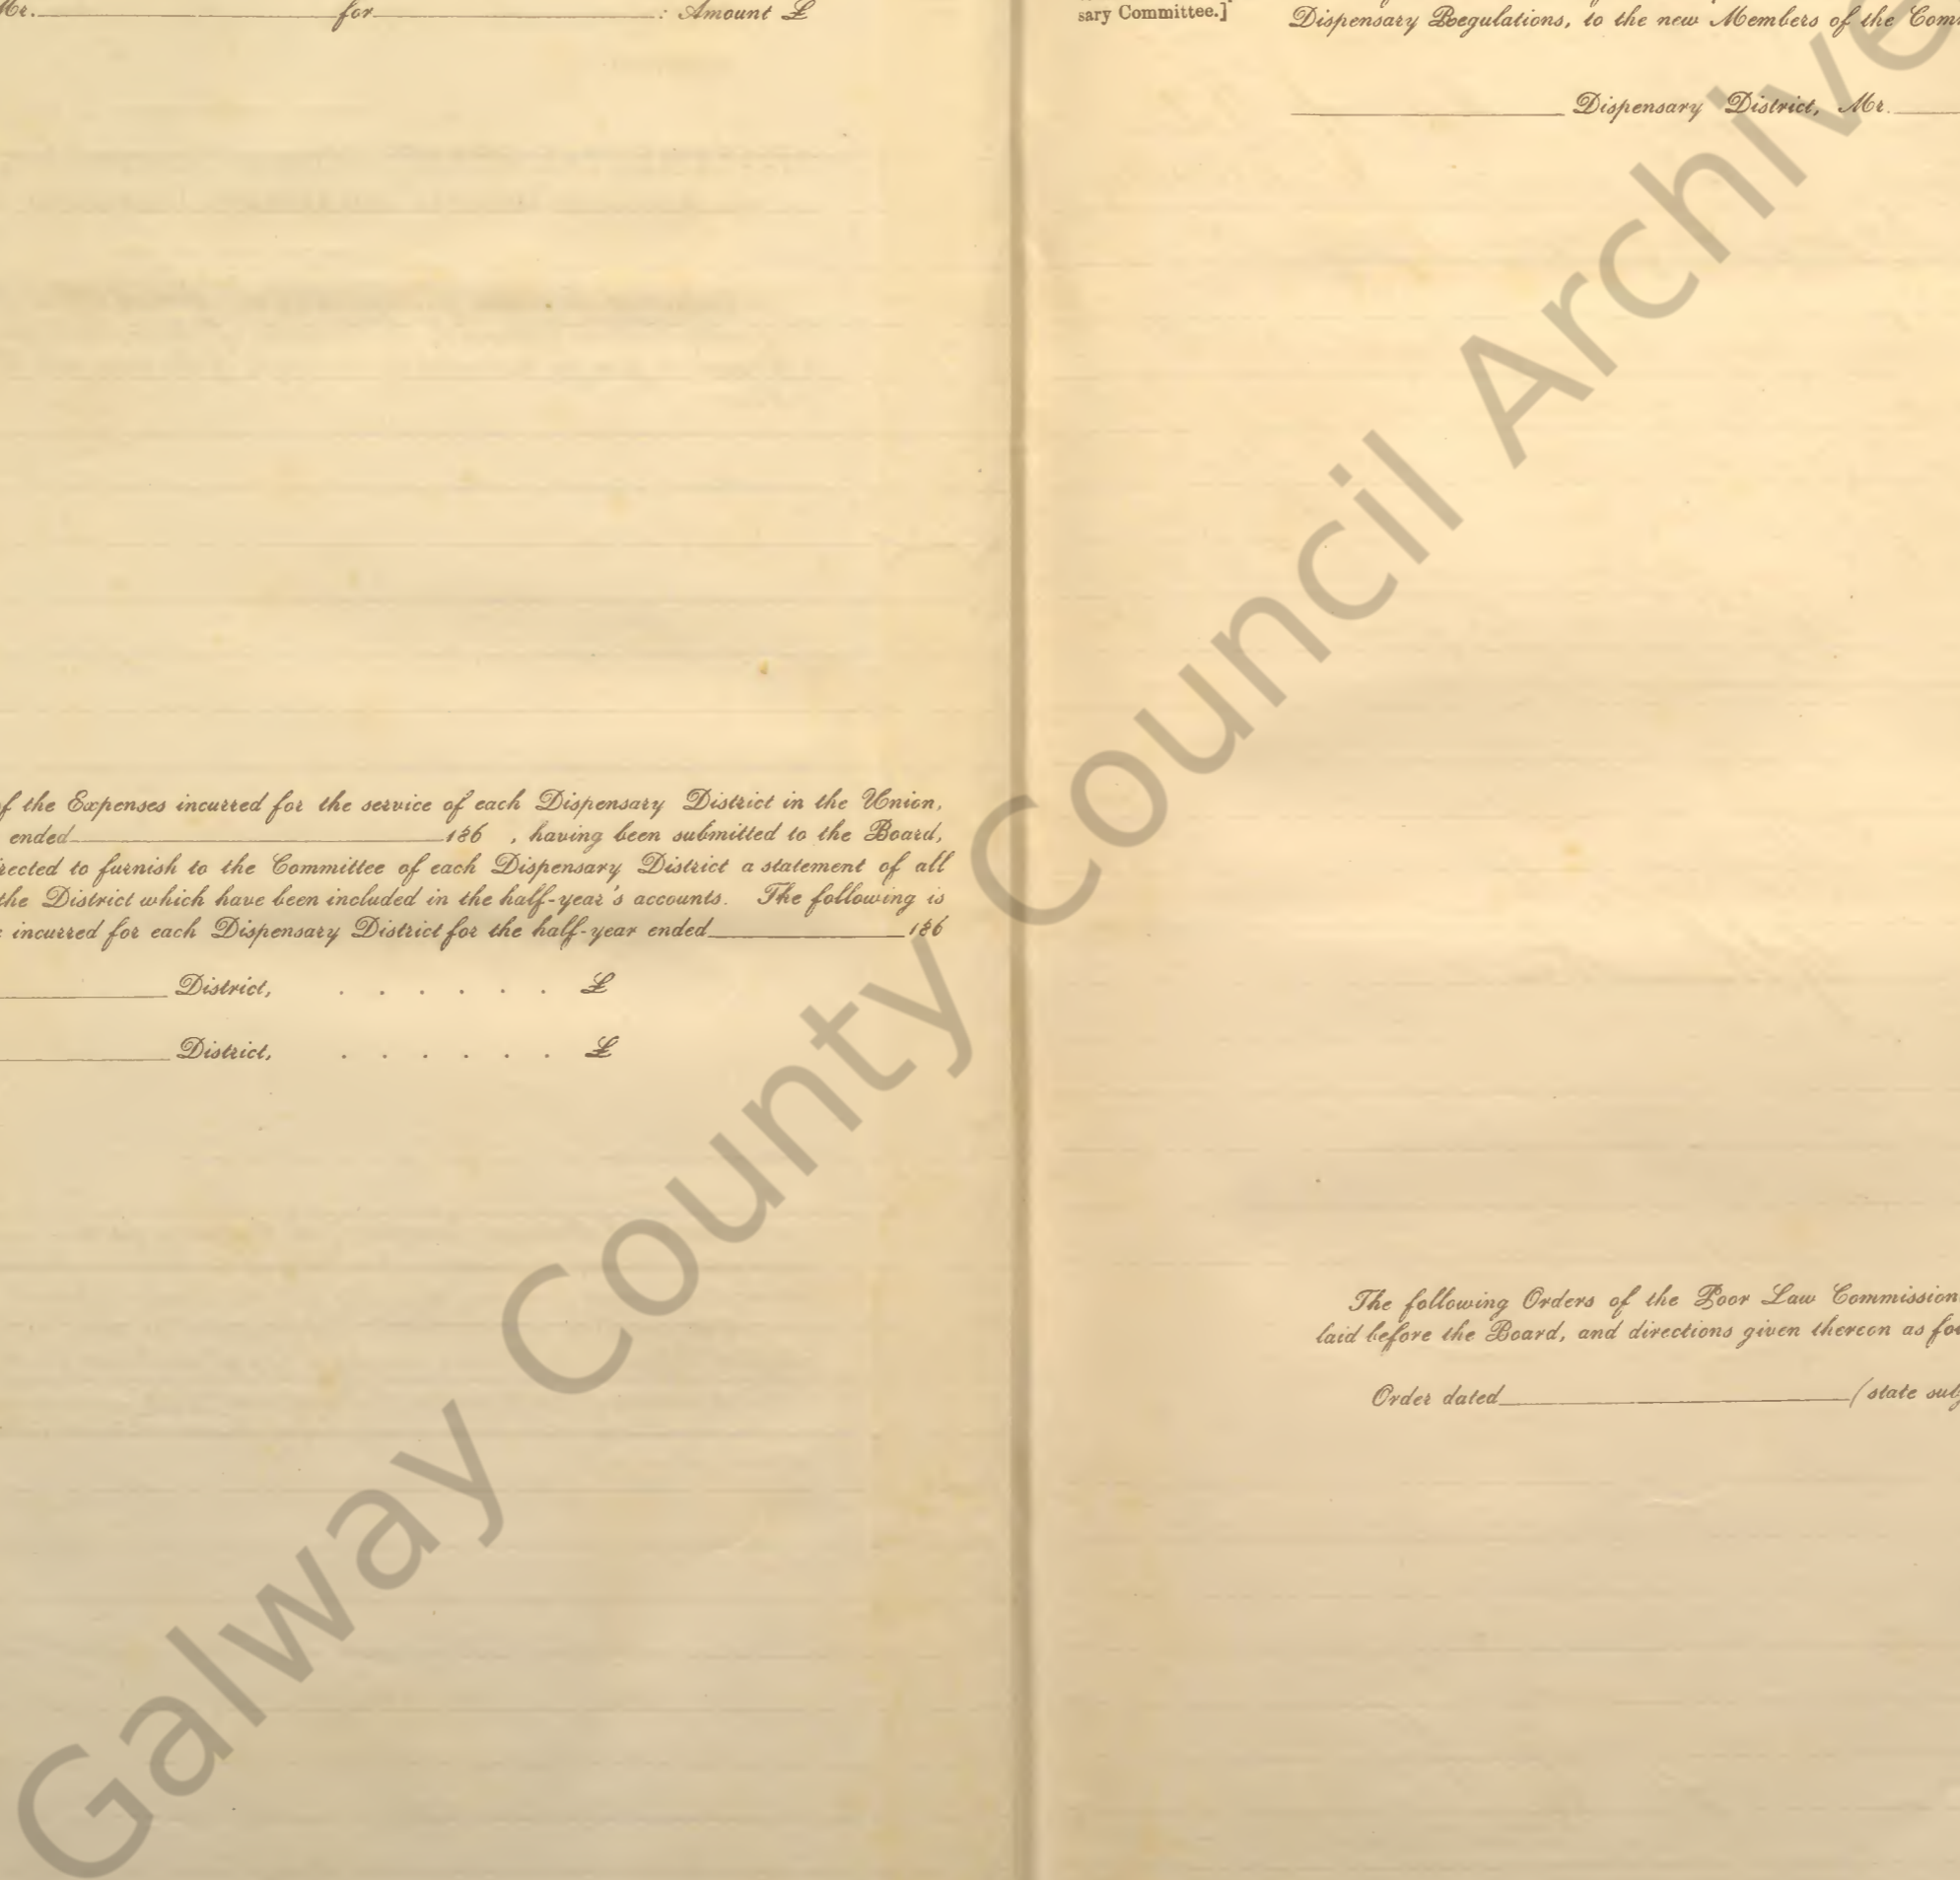 Mr.____for____: Amount £
f the Expenses incurred for the service of each Dispensary District in the Union,
ended____186 , having been submitted to the Board,
rected to furnish to the Committee of each Dispensary District a statement of all
the District which have been included in the half-year's accounts. The following is
incurred for each Dispensary District for the half-year ended____186
____District, . . . . . . £
____District, . . . . . . £
sary Committee.]
Dispensary Regulations, to the new Members of the Com
____Dispensary District, Mr.____
The following Orders of the Poor Law Commission
laid before the Board, and directions given thereon as fo
Order dated____(state sub
Galway County Council Archive